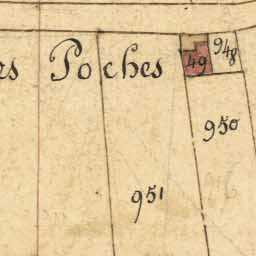 es Poches
948
49
950
951